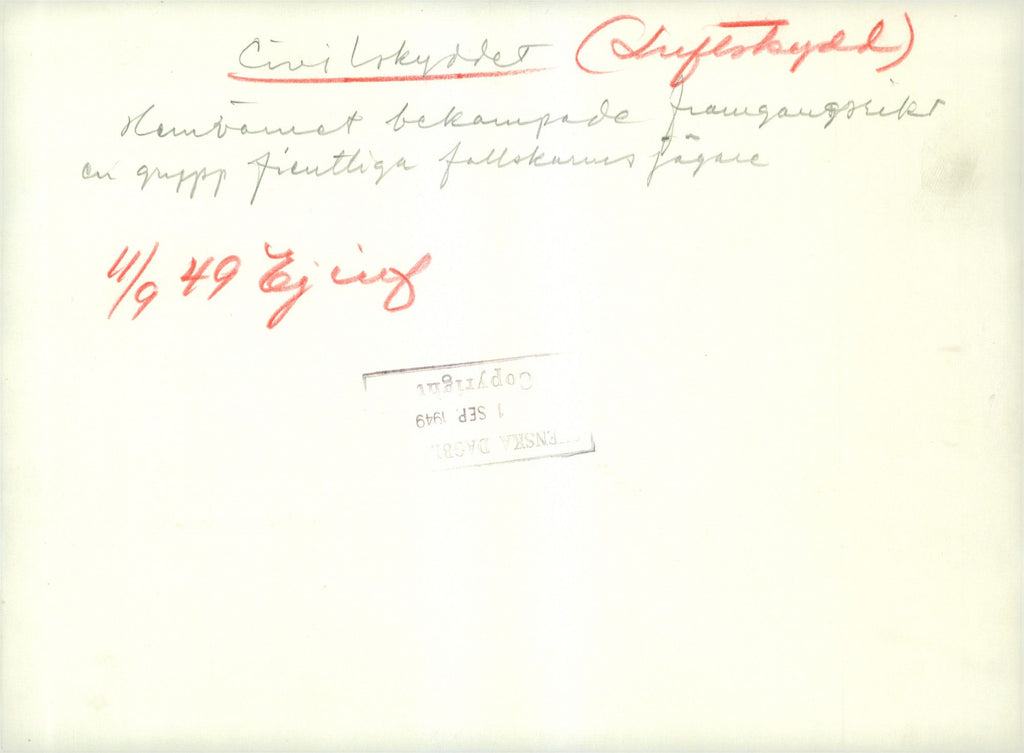 Civilskyddet (Luftskydd)
Hemvärnet bekämpade framgångsrikt
en grupp fientliga fallskärmsjägare
11/9 49 Ej inf
Copyright
1 SEP. 1949
SVENSKA DAGBL